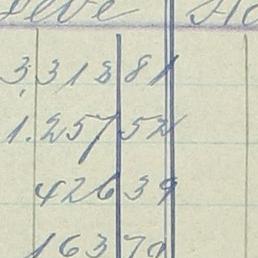 3.318 81
1.257 52
426 39
163 79